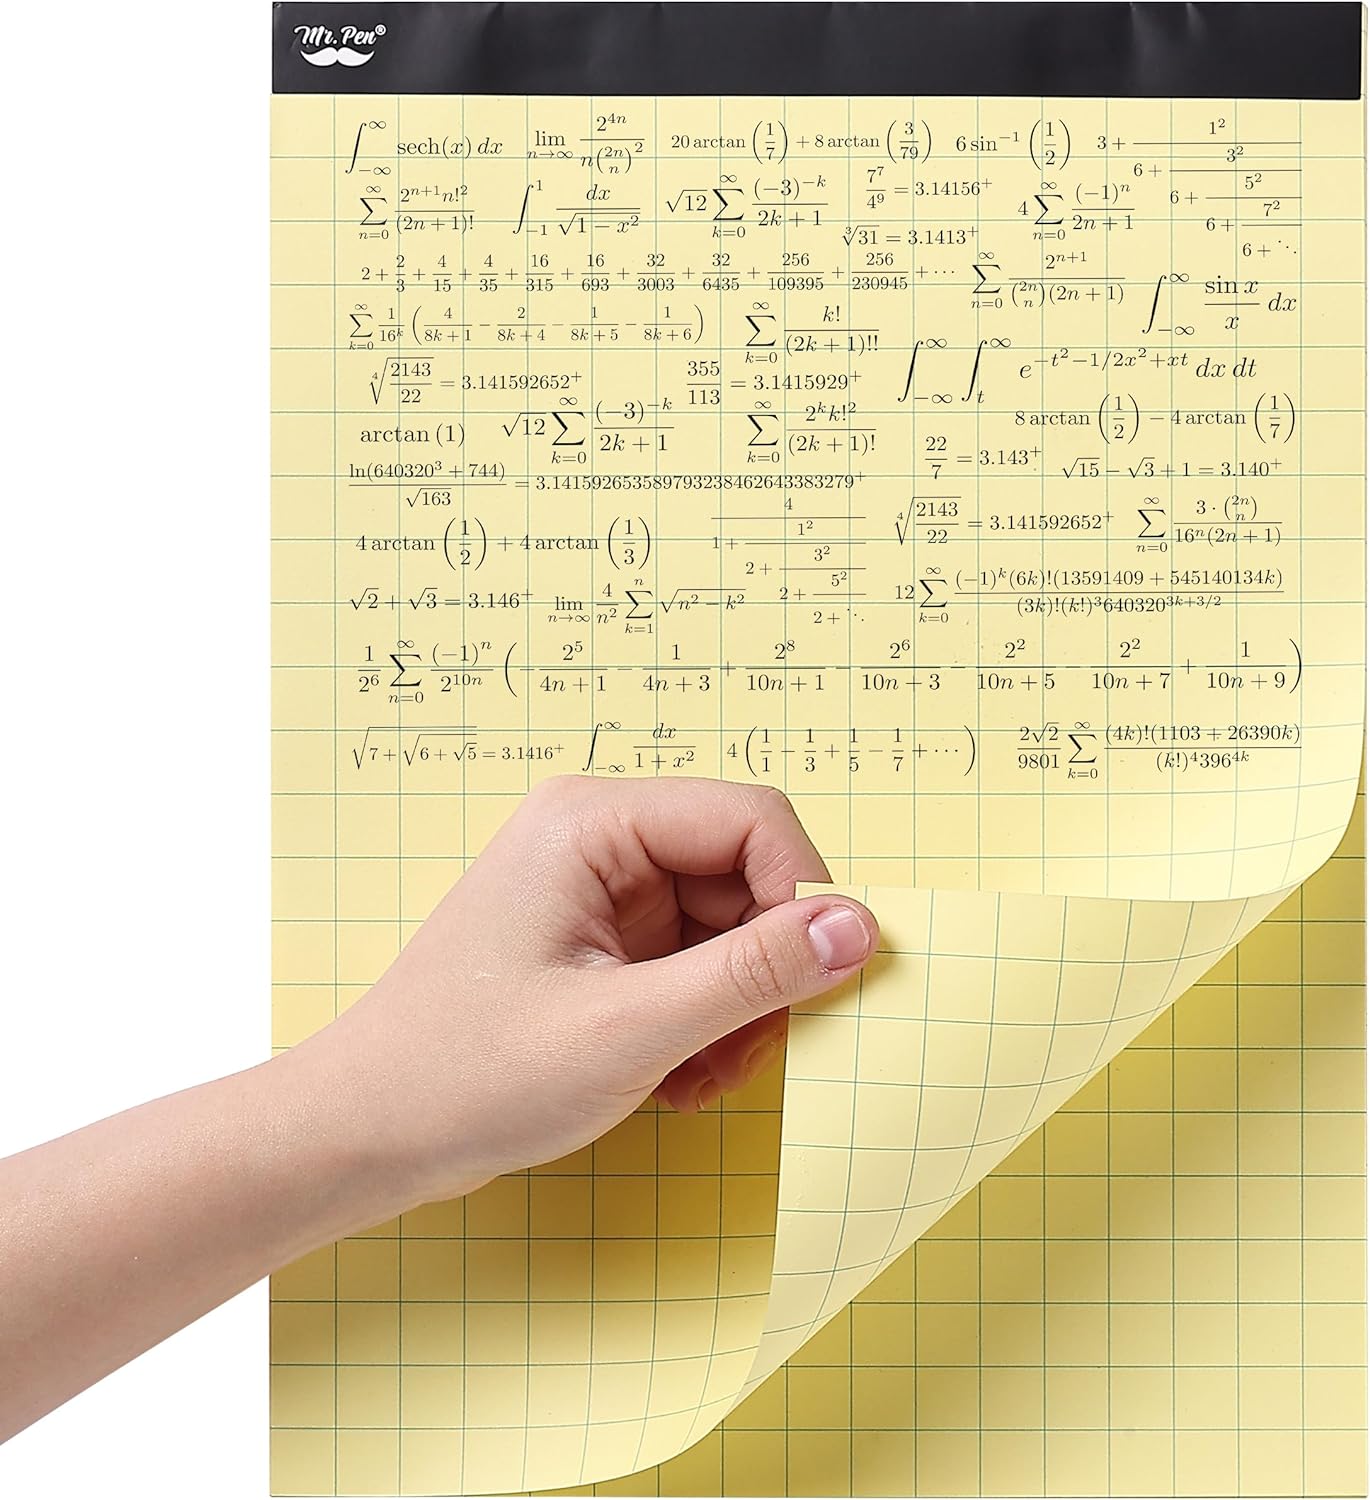 Mr. Pen®
∫_{-∞}^{∞} sech(x) dx   lim_{n→∞} 2^{4n} / (n (2n choose n)^2)   20 arctan(1/7) + 8 arctan(3/79)   6 sin^{-1}(1/2)   3 + 1^2/(6 + 3^2/(6 + 5^2/(6 + 7^2/(6 + ⋱))))
∑_{n=0}^{∞} 2^{n+1} n!^2 / (2n + 1)!   ∫_{-1}^{1} dx / √(1 − x^2)   √12 ∑_{k=0}^{∞} (−3)^{−k} / (2k + 1)   7^7/4^9 = 3.14156^+   4 ∑_{n=0}^{∞} (−1)^n / (2n + 1)
∛31 = 3.1413^+
2 + 2/3 + 4/15 + 4/35 + 16/315 + 16/693 + 32/3003 + 32/6435 + 256/109395 + 256/230945 + ⋯   ∑_{n=0}^{∞} 2^{n+1} / ((2n choose n)(2n + 1))   ∫_{-∞}^{∞} (sin x / x) dx
∑_{k=0}^{∞} 1/16^k (4/(8k + 1) − 2/(8k + 4) − 1/(8k + 5) − 1/(8k + 6))   ∑_{k=0}^{∞} k! / (2k + 1)!!   ∫_{-∞}^{∞} ∫_{t}^{∞} e^{−t^2−1/2x^2+xt} dx dt
∜(2143/22) = 3.141592652^+   355/113 = 3.1415929^+
arctan (1)   √12 ∑_{k=0}^{∞} (−3)^{−k} / (2k + 1)   ∑_{k=0}^{∞} 2^k k!^2 / (2k + 1)!   8 arctan(1/2) − 4 arctan(1/7)
22/7 = 3.143^+   √15 − √3 + 1 = 3.140^+
ln(640320^3 + 744) / √163 = 3.141592653589793238462643383279^+
4 arctan(1/2) + 4 arctan(1/3)   4/(1 + 1^2/(2 + 3^2/(2 + 5^2/(2 + ⋱))))   ∜(2143/22) = 3.141592652^+   ∑_{n=0}^{∞} 3 · (2n choose n) / (16^n (2n + 1))
√2 + √3 = 3.146^+   lim_{n→∞} 4/n^2 ∑_{k=1}^{n} √(n^2 − k^2)   12 ∑_{k=0}^{∞} (−1)^k (6k)!(13591409 + 545140134k) / ((3k)!(k!)^3 640320^{3k+3/2})
1/2^6 ∑_{n=0}^{∞} (−1)^n / 2^{10n} (−2^5/(4n + 1) − 1/(4n + 3) + 2^8/(10n + 1) − 2^6/(10n + 3) − 2^2/(10n + 5) − 2^2/(10n + 7) + 1/(10n + 9))
√(7 + √(6 + √5)) = 3.1416^+   ∫_{-∞}^{∞} dx / (1 + x^2)   4 (1/1 − 1/3 + 1/5 − 1/7 + ⋯)   2√2/9801 ∑_{k=0}^{∞} (4k)!(1103 + 26390k) / ((k!)^4 396^{4k})